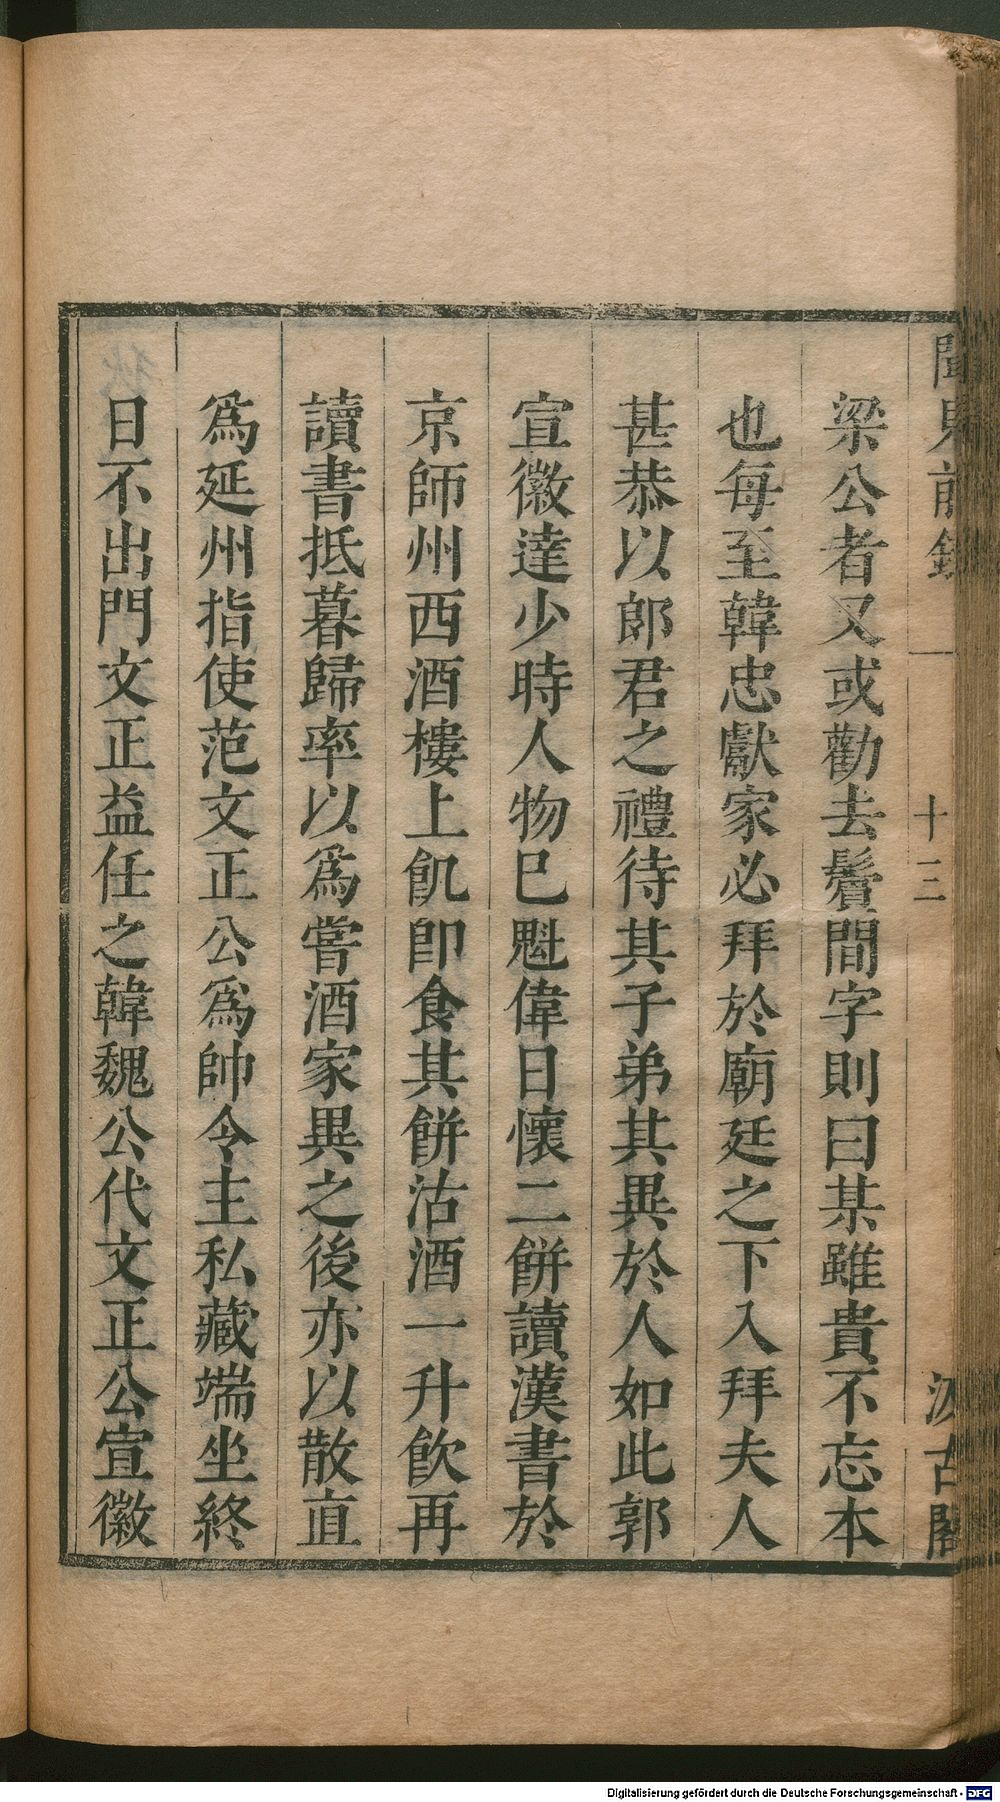 聞見前錄
十三
汲古閣
梁公者又或勸去鬢間字則曰某雖貴不忘本
也每至韓忠獻家必拜於廟廷之下入拜夫人
甚恭以郎君之禮待其子弟其異於人如此郭
宣徽逵少時人物巳魁偉日懷二餅讀漢書於
京師州西酒樓上飢卽食其餅沽酒一升飲再
讀書抵暮歸率以為嘗酒家異之後亦以散直
為延州指使范文正公為帥令主私藏端坐終
日不出門文正益任之韓魏公代文正公宣徽
Digitalisierung gefördert durch die Deutsche Forschungsgemeinschaft - DFG